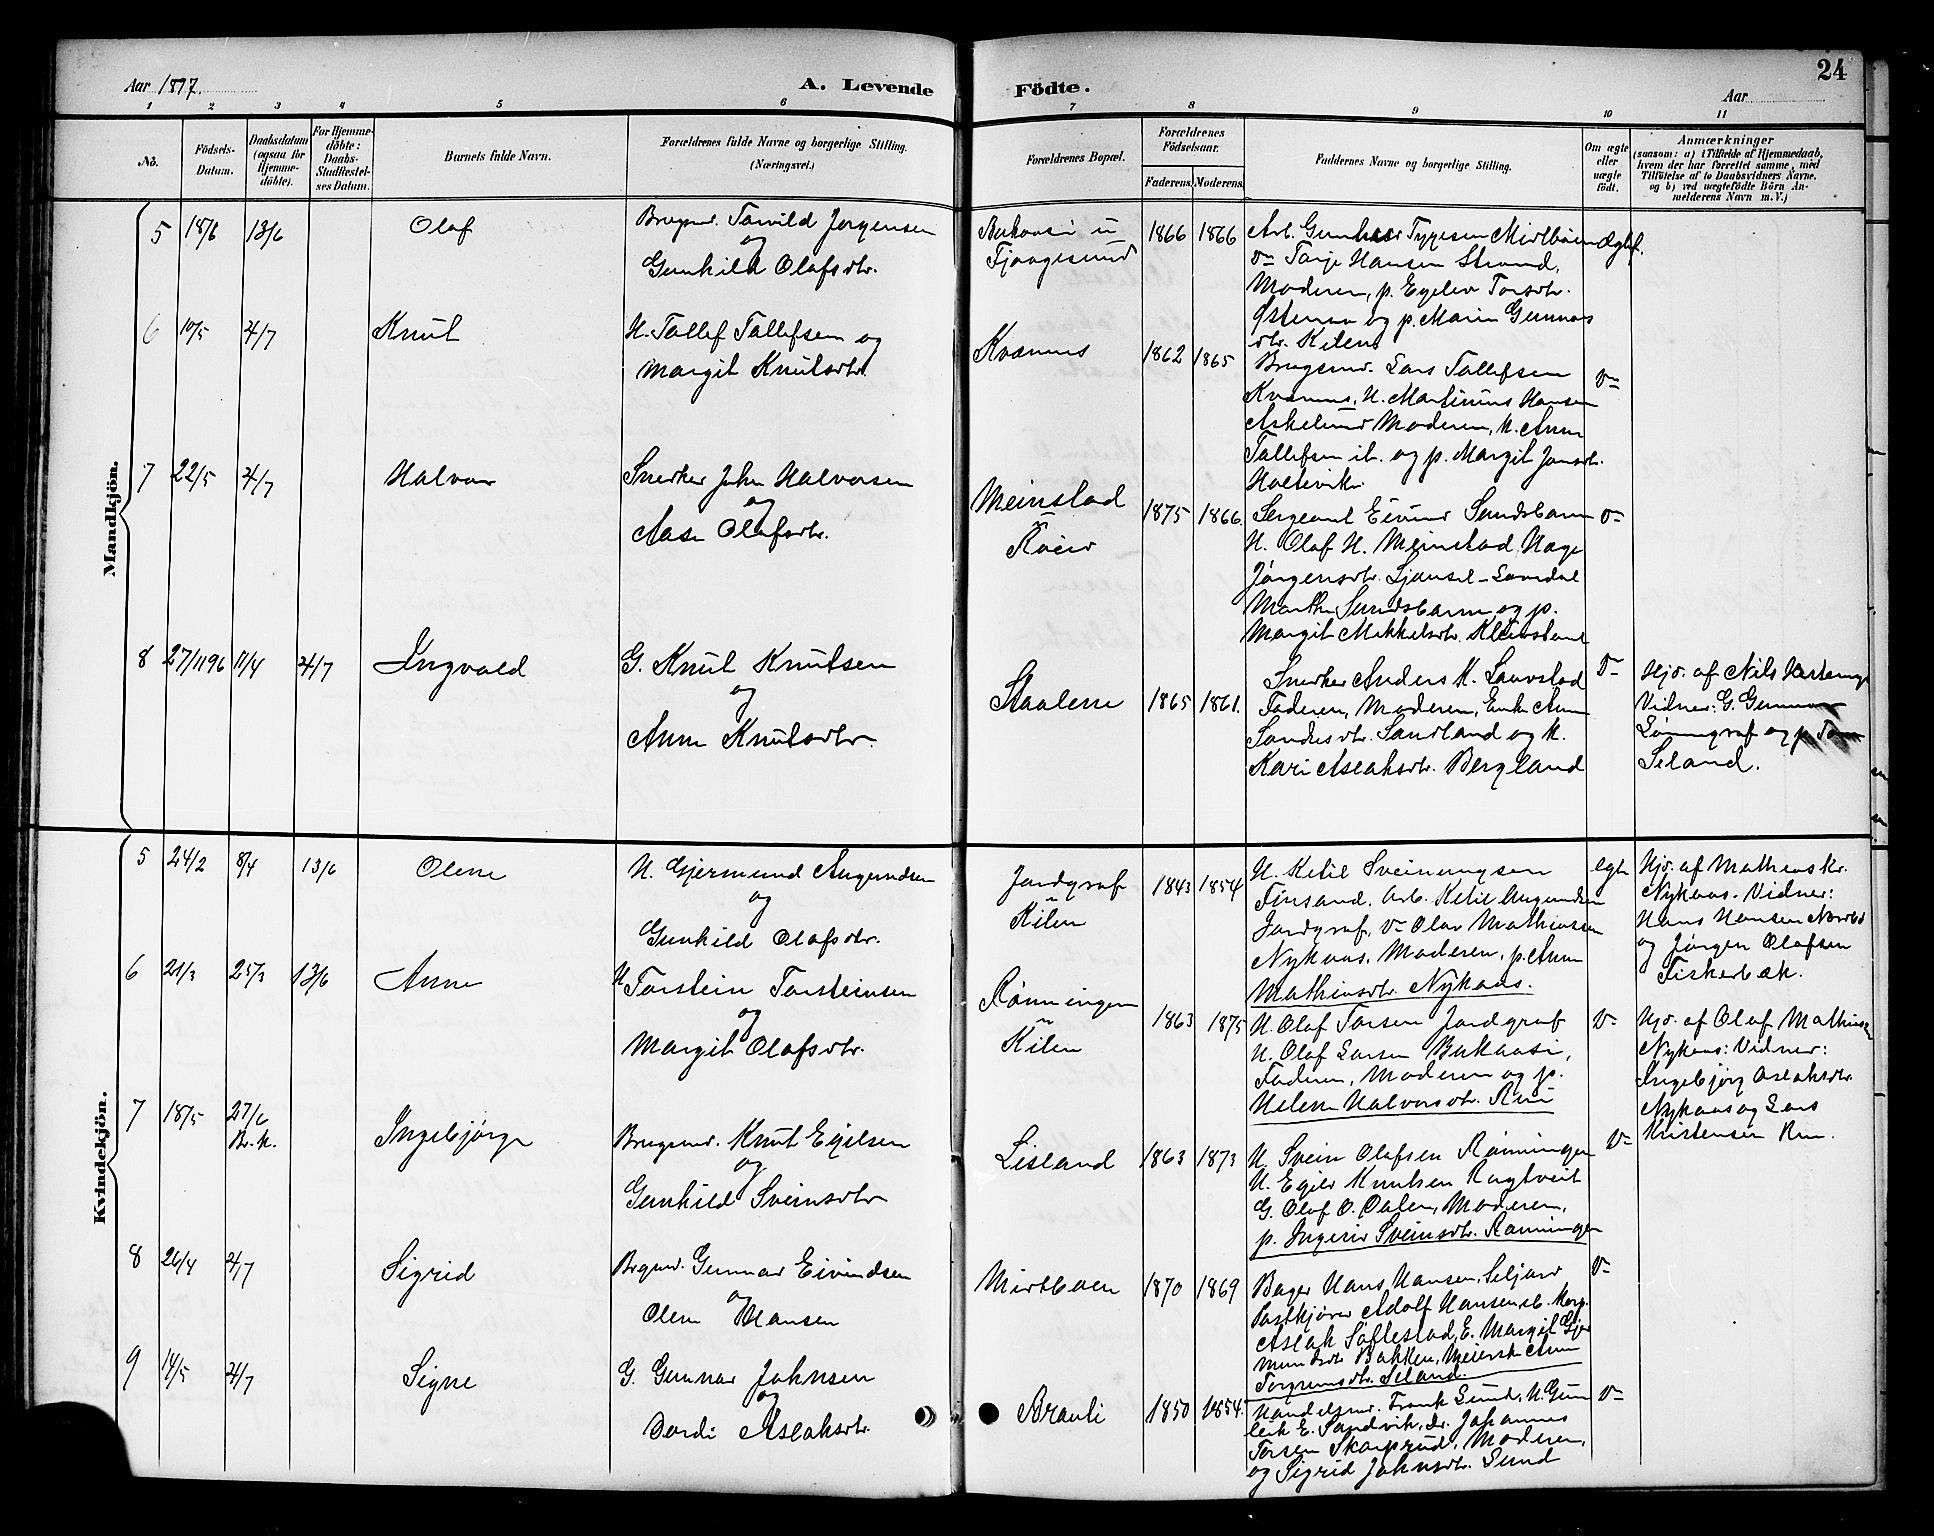 Aar 1897.
A. Levende
Födte.
24
Aar
1 2 3 4 5 6 7 8 9 10 11
No.
Födsels-
Datum.
Daabsdatum
(ogsaa for
Hjemme-
döbte).
For Hjemme-
döbte:
Daabs-
Stadfæstel-
ses Datum.
Barnets fulde Navn.
Forældrenes fulde Navne og borgerlige Stilling.
(Næringsvei.)
Forældrenes Bopæl.
Forældrenes
Födselsaar.
Faderens. Moderens.
Faddernes Navne og borgerlige Stilling.
Om ægte
eller
uægte
födt.
Anmærkninger
(saasom: a) i Tilfælde af Hjemmedaab,
hvem der har forrettet samme, med
Tilföielse af to Daabsvidners Navne,
og b) ved uægtefödte Börn An-
melderens Navn m. V.)
Mandkjön.
5 18/6 13/6 Olaf
Brugsm. Torvild Jørgensen
og
Gunhild Olafsdtr.
Bukaasi u
Fjaagesund
1866 1866
Arb. Gunhar Tygesen Mirtbøen
Terje Hansen Strand,
Moderen, p. Egelev Torsdtr.
Østenaa og p. Marie Gunnars
dtr. Kilen
6 10/5 4/7 Knut
H. Tallef Tallefsen og
Margit Knutsdtr.
Kvannes
1862 1865
Brugsm. Lars Tallefsen
Kvannes, H. Martinus Hansen
Askelund Moderen, K. Anne
Tallefsen ib. og p. Margit Jonsdtr.
Holtevik.
7 22/5 4/7 Halvor
Snerker John Halvorsen
og
Aase Olafsdtr.
Meinstad
Røier
1875 1866.
Sergeant Eivind Sundsbarm
H. Olaf H. Meinstad Hæge
Jørgensdtr. Ljansel - Laurdal
Marthe Sundsbarm og p.
Margit Mikkelsdtr. Kleivstand
8 27/11 96 11/4 4/7 Ingvald
G. Knut Knutsen
og
Anne Knutsdtr.
Staalene
1865 1861.
Snerker Anders K. Lauvstad
Faderen, Moderen, Enke Anne
Sandresdtr. Sandland og K.
Kari Aslaksdtr. Bergland
Hjd. af Nils
Vidner: G. Gunnar
og p.
Seland.
Kvindekjön.
5 24/2 8/4 13/6 Olene
H. Gjermund Augundsen
og
Gunhild Olafsdtr.
Jordgraf
Kilen
1843 1854
H. Ketil Sveinungsen
Finsand, Arb. Ketil Augundsen
Jordgraf, Olav Mathiassen
Nykaas, Moderen, p. Anne
Mathiasdtr. Nykaas.
egte
Hjd. af Mathias Kr.
Nykaas. Vidner:
Hans Hansen Norbø
og Jørgen Olafsen
Fiskerbæk.
6 21/3 25/3 13/6 Anne
H Torstein Torsteinsen
og
Margit Olafsdtr.
Rønningen
Kilen
1863 1875
H. Olaf Torsen Jordgraf
H. Olaf Larsen Bukaasi,
Faderen, Moderen og p.
Helene Halvorsdtr. Rui
Hjd. af Olaf Mathiasen
Nykaas: Vidner:
Ingebjørg Aslaksdtr.
Nykaas og Lars
Kristensen Rui.
7 18/5 27/6
Br. K.
Ingebjørge
Brugsm. Knut Egilsen
og
Gunhild Sveinsdtr
Lisland
1863 1873
H. Svein Olafsen Rønningen
H. Egil Knutsen Rogtveit
G. Olaf O. Dalen, Moderen,
p. Ingerid Sveinsdtr. Rønningen
8 26/4 4/7 Sigrid
Brgsm. Gunnar Eivindsen
og
Olene Hansen
Mirtbøen
1870 1869
Bager Hans Hansen, Seljord
Postkjører Adolf Hansen ib.
Aslak Søftestad, E. Margit Gjer
mundsdtr Bakken, Meierske Anne
Torgrimsdtr. Seland.
9 14/5 4/7 Signe
G. Gunnar Johnsen
og
Dordi Aslaksdtr.
Brauti
1850 1854.
Handelsm. Frank Lund, H. Gun
leik E. Sandvik, Johannes
Torsen Skarprud, Moderen,
og Sigrid Johnsdtr. Lund